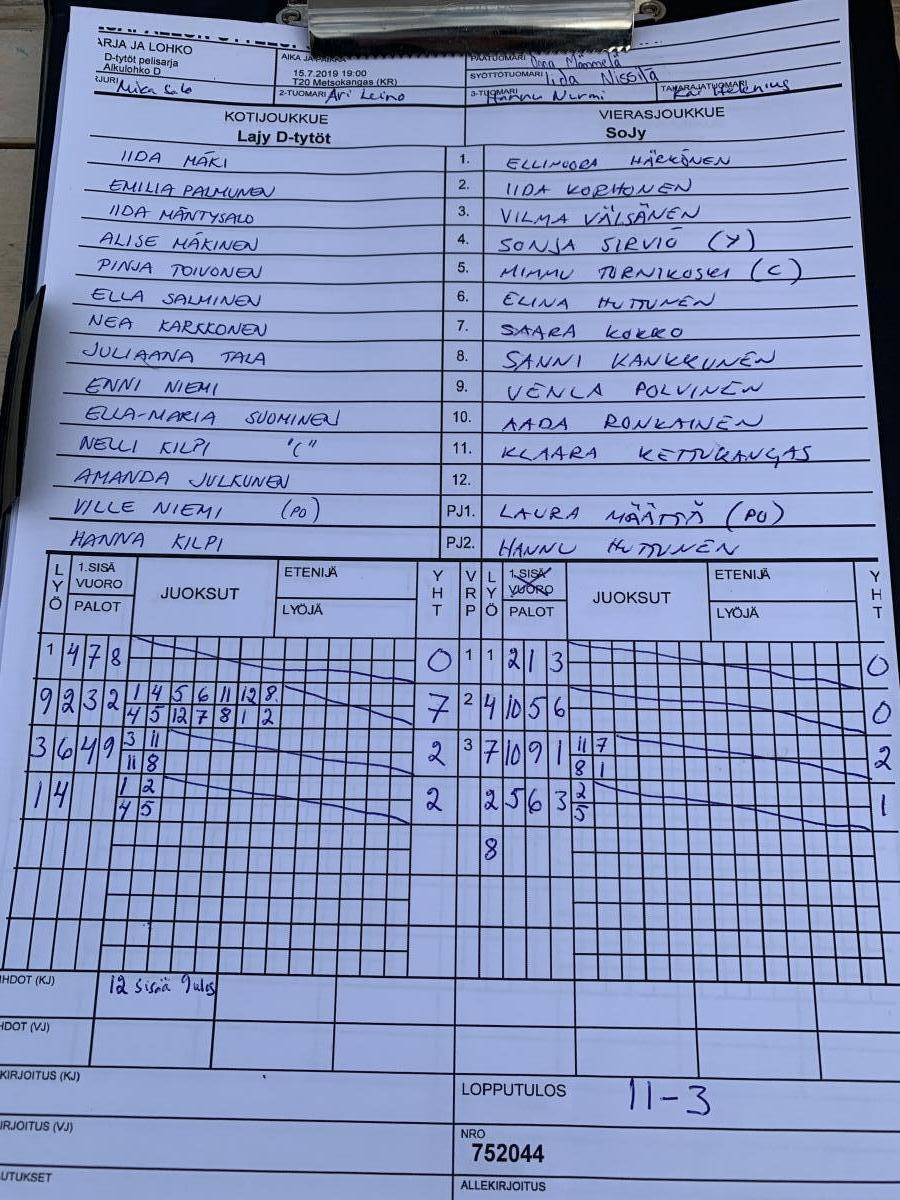 ARJA JA LOHKO
D-tytöt pelisarja
Alkulohko D
AIKA JA PAIKKA
15.7.2019 19:00
T20 Metsokangas (KR)
PÄÄTUOMARI
SYÖTTÖTUOMARI Iida Nissilä
RJURI Mika Salo
2-TUOMARI Ari Leino
3-TUOMARI Hannu Nurmi
TAKARAJATUOMARI Kai Helenius
KOTIJOUKKUE VIERASJOUKKUE
Lajy D-tytöt SoJy
IIDA MÄKI 1. ELLINOORA HÄRKÖNEN
EMILIA PALMUNEN 2. IIDA KORHONEN
IIDA MÄNTYSALO 3. VILMA VÄISÄNEN
ALISE MÄKINEN 4. SONJA SIRVIÖ (Y)
PINJA TOIVONEN 5. MIMMU TORNIKOSKI (C)
ELLA SALMINEN 6. ELINA HUTTUNEN
NEA KARKKONEN 7. SAARA KOKKO
JULIAANA TALA 8. SANNI KANKKUNEN
ENNI NIEMI 9. VENLA POLVINEN
ELLA-MARIA SUOMINEN 10. AADA RONKAINEN
NELLI KILPI "C" 11. KLAARA KETTUKANGAS
AMANDA JULKUNEN 12.
VILLE NIEMI (PO) PJ1. LAURA MÄÄTTÄ (PO)
HANNA KILPI PJ2. HANNU HUTTUNEN
LYÖ 1.SISÄ VUORO PALOT JUOKSUT ETENIJÄ LYÖJÄ YHT VRP LYÖ 1.SISÄ VUORO PALOT JUOKSUT ETENIJÄ LYÖJÄ YHT
1 4 7 8 0 1 1 2 1 3 0
9 2 3 2 1 4 5 6 11 12 8 7 2 4 10 5 6 0
4 5 12 7 8 1 2
3 6 4 9 3 11 2 3 7 10 9 1 11 7 2
11 8 8 1
1 4 1 2 2 2 5 6 3 2 1
4 5 5
8
HDOT (KJ) 12 sisää 9 ulos
HDOT (VJ)
KIRJOITUS (KJ)
LOPPUTULOS 11-3
IRJOITUS (VJ)
NRO
752044
UTUKSET
ALLEKIRJOITUS